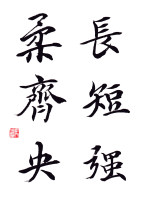 長短强
柔齊央